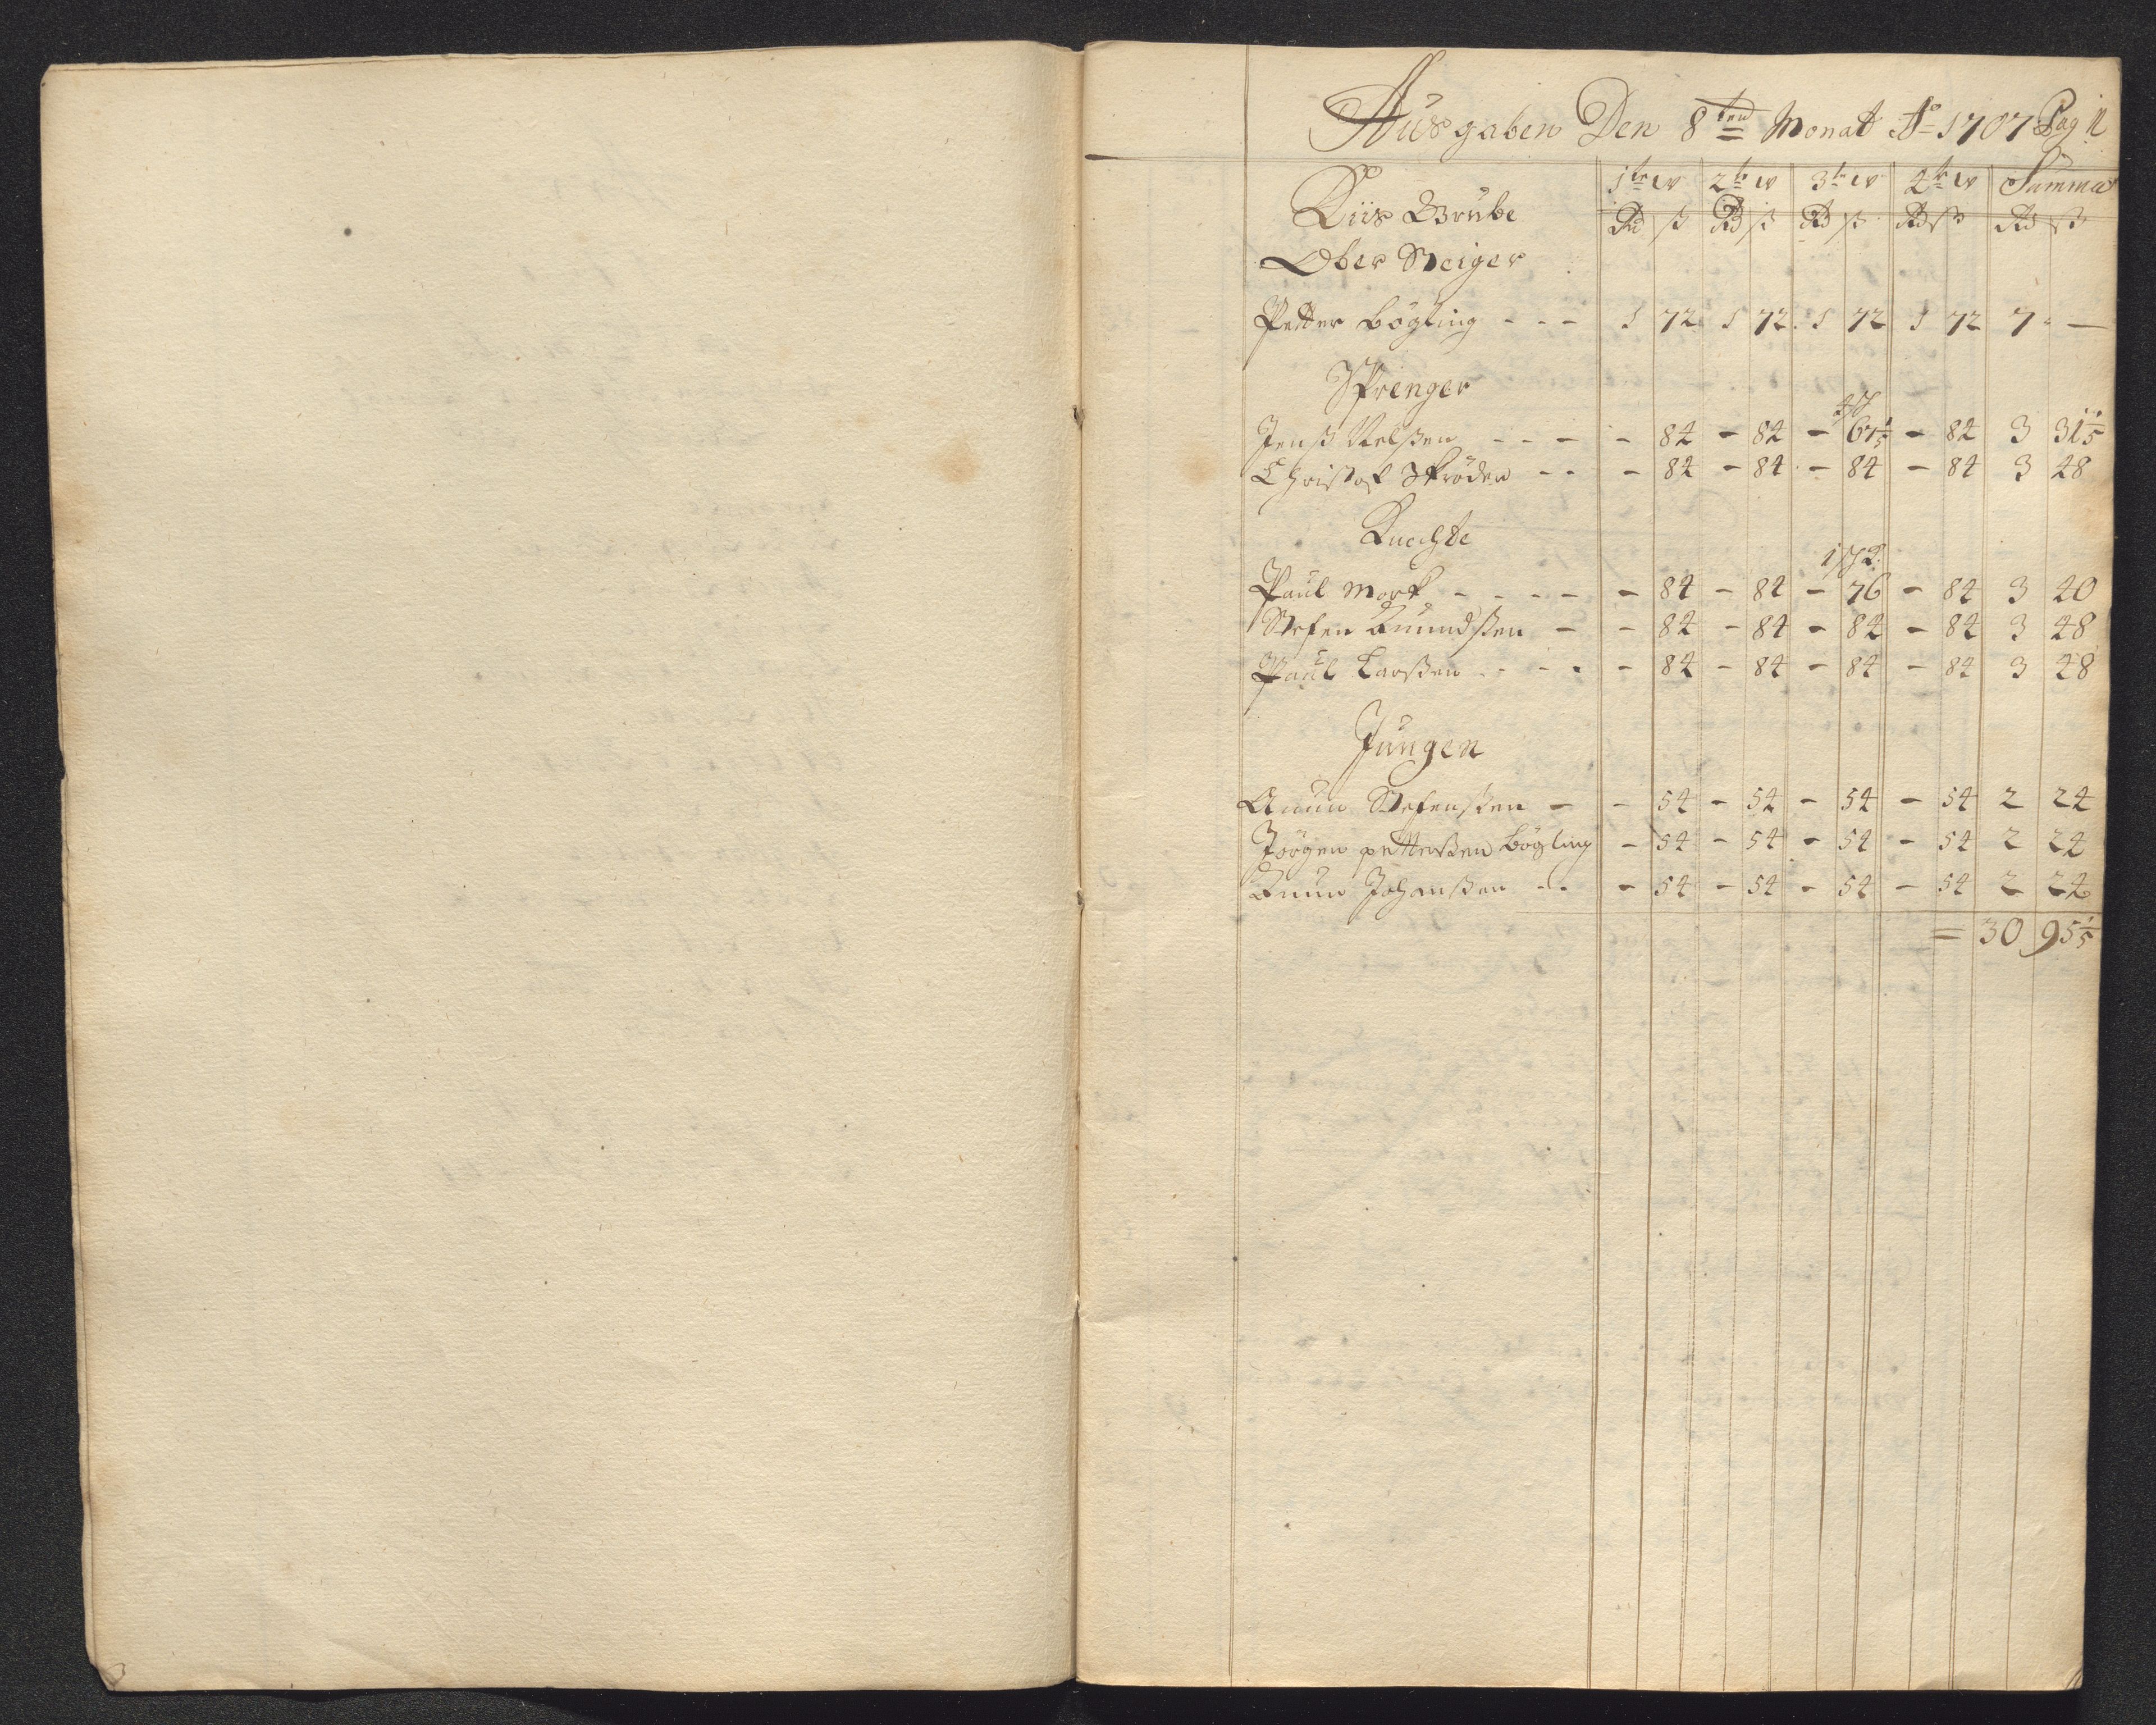 Ausgaben Den 8ten Monat Ao 1707 Pag 11
1te w 2te w 3te w 4te w Summa
Kiis Grube Rd ß Rd ß Rd ß Rd ß Rd ß
Ober Steiger
Petter Bögling - - - 1 72 1 72 1 72 1 72 7 - —
Sprenger
Jenß Nelßen - - - - 84 - 84 - 67 1/5 - 84 3 31 1/5
Christof Skröder - - - 84 - 84 - 84 - 84 3 48
Knechte
Paul Mork - - - - - 84 - 84 - 76 - 84 3 40
Stefen Knundßen - - 84 - 84 - 84 - 84 3 48
Paul Larßen - - - - 84 - 84 - 84 - 84 3 48
Jungen
Anun Stefenßen - - 54 - 54 - 54 - 54 2 24
Jörgen petterßen Bögling - 54 - 54 - 54 - 54 2 24
Knun Johanßen - - - 54 - 54 - 54 - 54 2 24
= 30 95 1/5